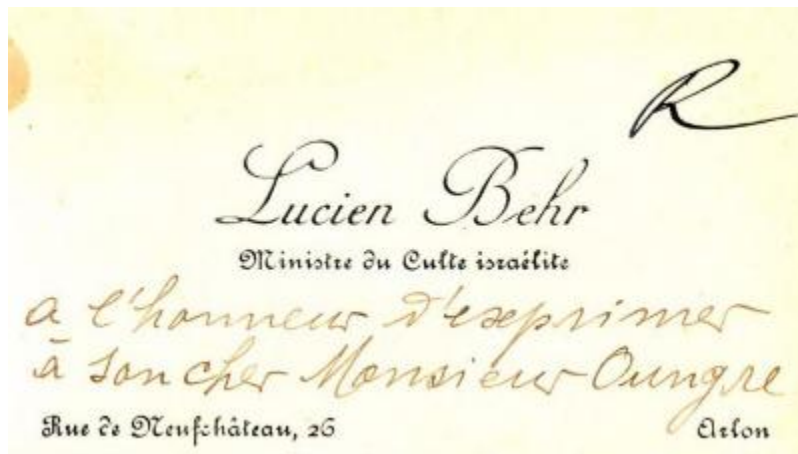 R
Lucien Behr
Ministre du Culte israélite
a l'honneur d'exprimer
à son cher Monsieur Oungre
Rue de Neufchâteau, 26 Arlon